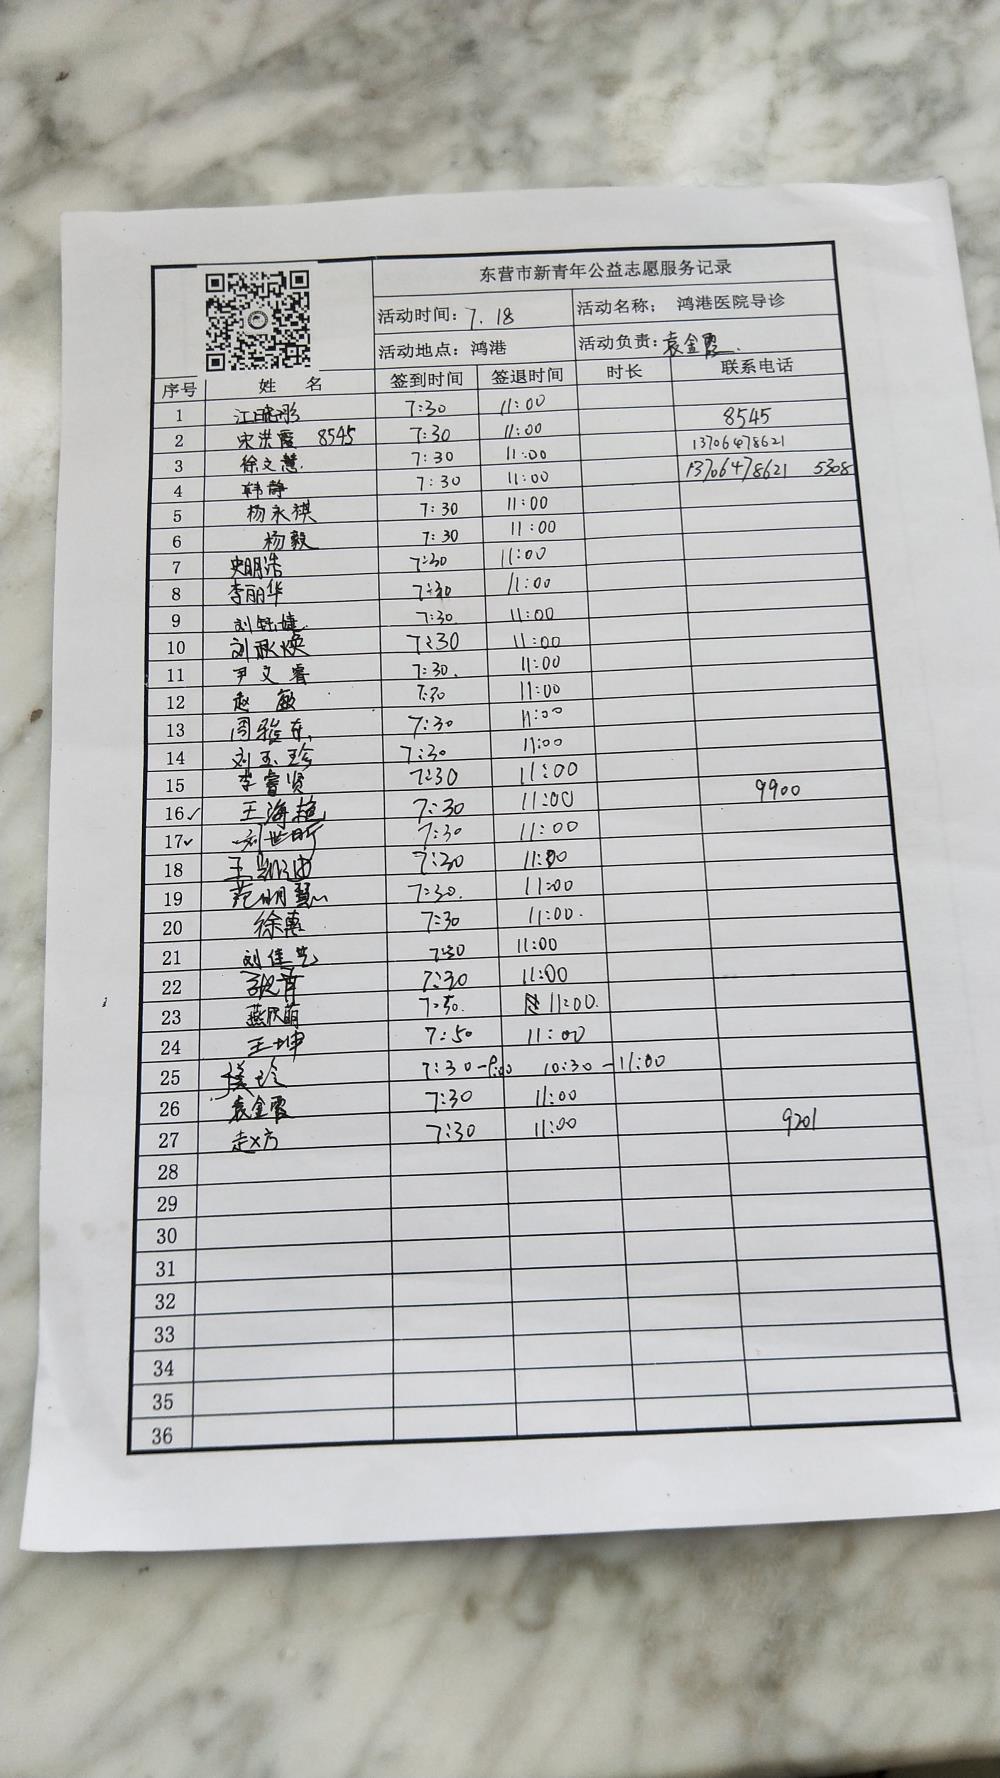 东营市新青年公益志愿服务记录
活动时间：7.18 活动名称； 鸿港医院导诊
活动地点：鸿港 活动负责：袁金霞
序号 姓 名 签到时间 签退时间 时长 联系电话
1 江晓彤 7:30 11:00 8545
2 宋洪霞 8545 7:30 11:00 13706478621
3 徐文慧 7:30 11:00 13706478621 5308
4 韩静 7:30 11:00
5 杨永祺 7:30 11:00
6 杨毅 7:30 11:00
7 史明浩 7:30 11:00
8 李丽华 7:30 11:00
9 刘钰婕 7:30 11:00
10 刘承焕 7:30 11:00
11 尹文睿 7:30 11:00
12 赵敏 7:30 11:00
13 周雅东 7:30 11:00
14 刘玉珍 7:30 11:00
15 李睿贤 7:30 11:00 9900
16 王海艳 7:30 11:00
17 刘世昕 7:30 11:00
18 王 7:30 11:00
19 范明慧 7:30 11:00
20 徐惠 7:30 11:00
21 刘佳艺 7:30 11:00
22 7:30 11:00
23 燕欣萌 7:50 11:00
24 王坤 7:50 11:00
25 7:30 10:30-11:00
26 袁金霞 7:30 11:00
27 赵方 7:30 11:00 9201
28
29
30
31
32
33
34
35
36